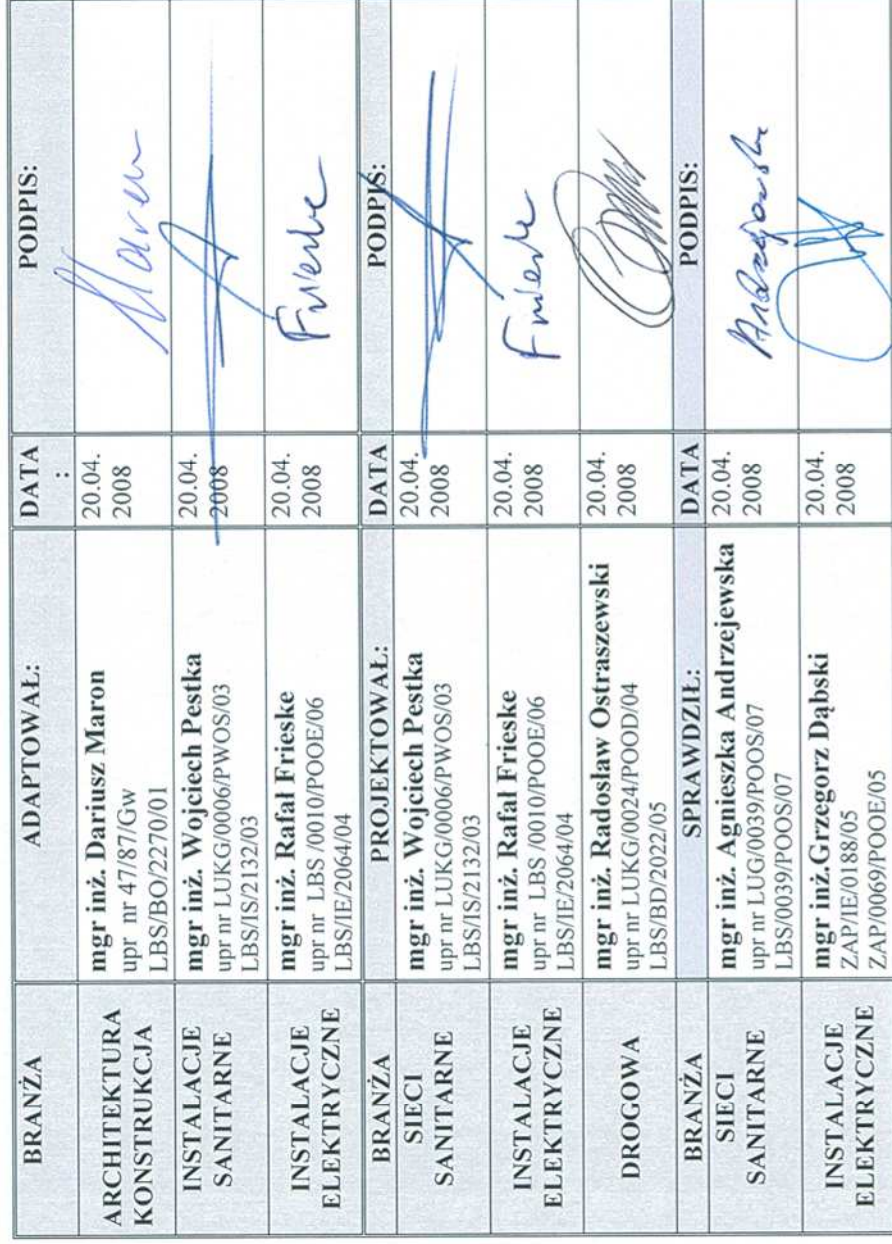 BRANŻA
ADAPTOWAŁ:
DATA
:
PODPIS:
ARCHITEKTURA
KONSTRUKCJA
mgr inż. Dariusz Maron
upr nr 47/87/Gw
LBS/BO/2270/01
20.04.
2008
Maron
INSTALACJE
SANITARNE
mgr inż. Wojciech Pestka
upr nr LUKG/0006/PWOS/03
LBS/IS/2132/03
20.04.
2008
INSTALACJE
ELEKTRYCZNE
mgr inż. Rafał Frieske
upr nr LBS /0010/POOE/06
LBS/IE/2064/04
20.04.
2008
Frieske
BRANŻA
PROJEKTOWAŁ:
DATA
PODPIS:
SIECI
SANITARNE
mgr inż. Wojciech Pestka
upr nr LUKG/0006/PWOS/03
LBS/IS/2132/03
20.04.
2008
INSTALACJE
ELEKTRYCZNE
mgr inż. Rafał Frieske
upr nr LBS /0010/POOE/06
LBS/IE/2064/04
20.04.
2008
Frieske
DROGOWA
mgr inż. Radosław Ostraszewski
upr nr LUKG/0024/POOD/04
LBS/BD/2022/05
20.04.
2008
BRANŻA
SPRAWDZIŁ:
DATA
PODPIS:
SIECI
SANITARNE
mgr inż. Agnieszka Andrzejewska
upr nr LUG/0039/POOS/07
LBS/0039/POOS/07
20.04.
2008
Andrzejewska
INSTALACJE
ELEKTRYCZNE
mgr inż.Grzegorz Dąbski
ZAP/IE/0188/05
ZAP/0069/POOE/05
20.04.
2008